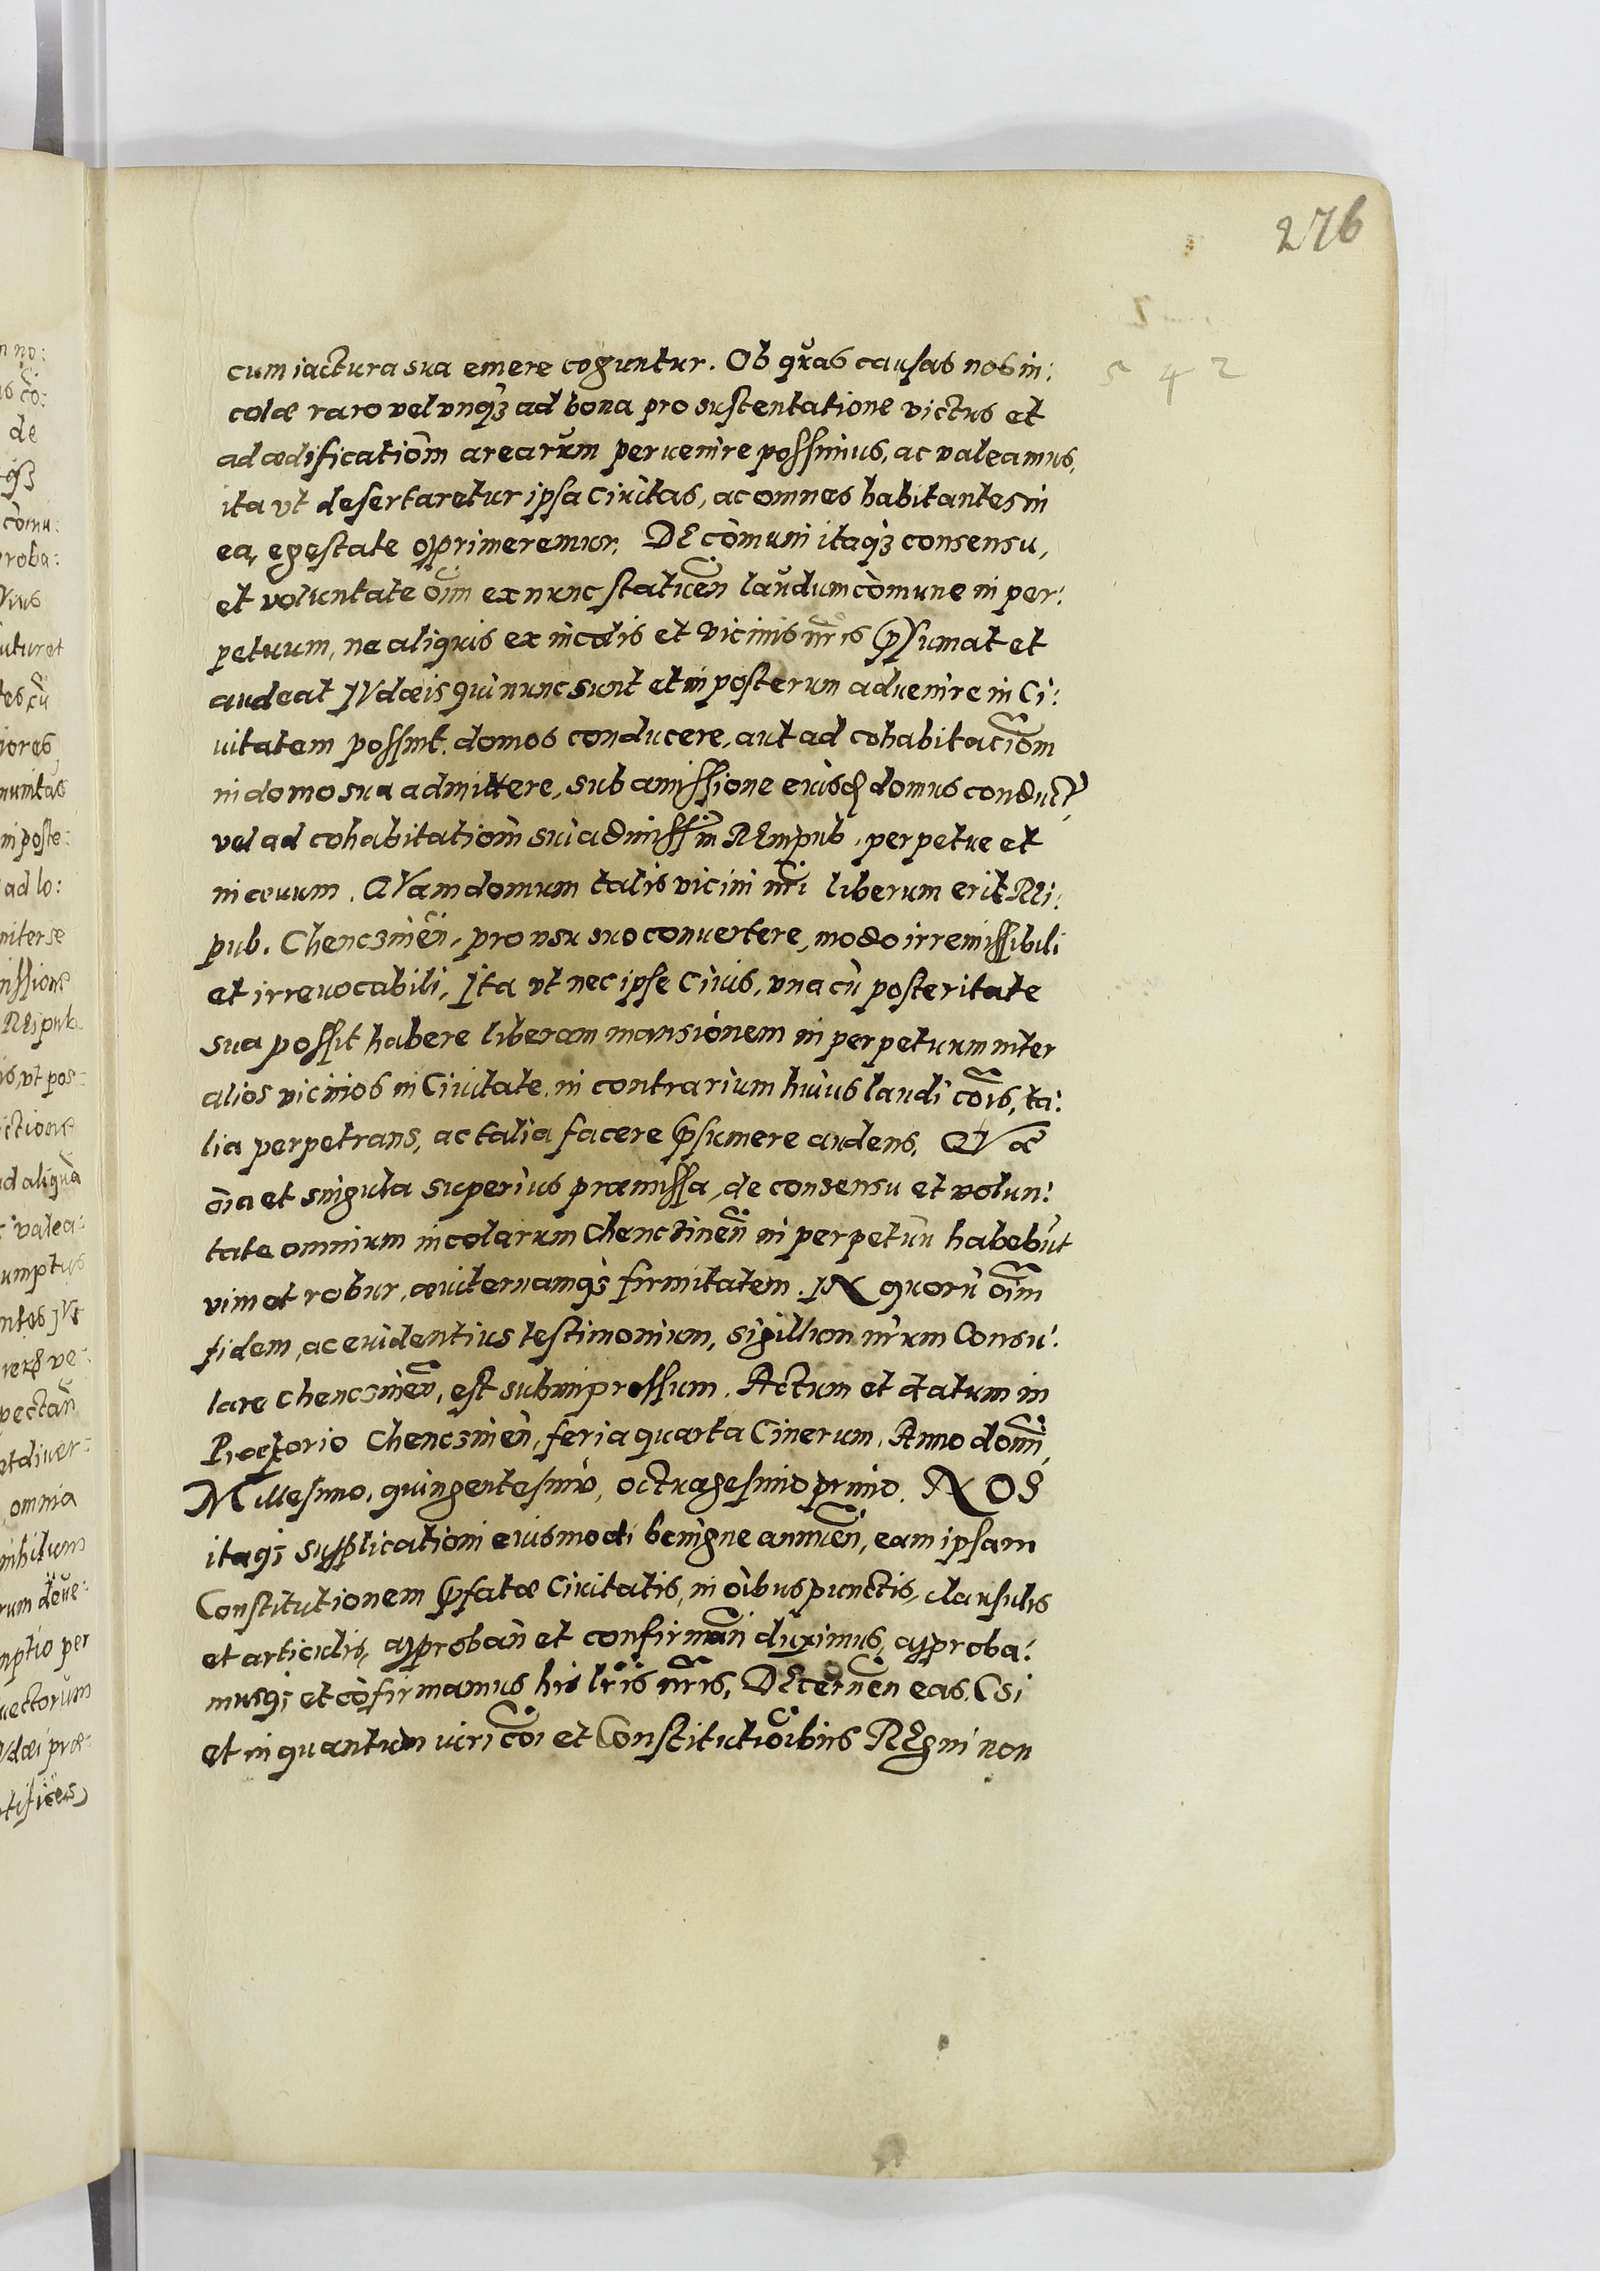 276
5 4 2
cum iactura sua emere coguntur. Ob quas causas nos in:
colæ raro vel vnqȝ ad bona pro sustentatione victus et
ad ædificatiōm arearum peruenire possimus, ac valeamus,
ita vt desertaretur ipsa Ciuitas, ac omnes habitantes in
ea, egestate opprimeremur. DE cōmuni itaqȝ consensu,
et voluntate oīm ex nunc statuēn laudum cōmune in per:
petuum, ne aliquis ex incolis et vicinis nr̄is p̄sumat et
audeat JVdæis qui nunc sunt et in posterum aduenire in Ci:
uitatem possint, domos conducere, aut ad cohabitaciōm
in domo sua admittere, sub amissione eiusd domus conduct
vel ad cohabitatiōm sui admissim̄ REmpub. perpetue et
in æuum. QVam domum talis vicini nr̄i liberum erit REi:
pub. Chencȝinēn, pro vsu suo conuertere, modo irremissibili
et irreuocabili, Jta vt nec ipse Ciuis, vna cū posteritate
sua possit habere liberam mansionem in perpetuum inter
alios vicinos in Ciuitate, in contrarium huius laudi cōis, ta:
lia perpetrans, ac talia facere p̄sumere audens. QVæ
ōia et singula superius præmissa, de consensu et volun:
tate omnium incolarum Chenctinēn in perpetuū habebūt
vim et robur, æuiternamqȝ firmitatem. JN quorū oīm
fidem, ac euidentius testimonium, sigillum nr̄um Consu:
lare Chencȝinēn, est subimpressum. Actum et datum in
Prætorio Chencȝinēn, feria quarta Cinerum, Anno domī,
Millesimo, quingentesimo, octuagesimo primo. NOS
itaqȝ supplicationi eiusmodi benigne annuēn, eam ipsam
Constitutionem p̄fatæ Ciuitatis, in oībus punctis, clausulis
et articulis, approbān et confirmān duximus, approba:
musqȝ et cōfirmamus his lr̄is nr̄is, DEcernēn eas,
et in quantum iuri cōi et Constitutiōibus REgni non